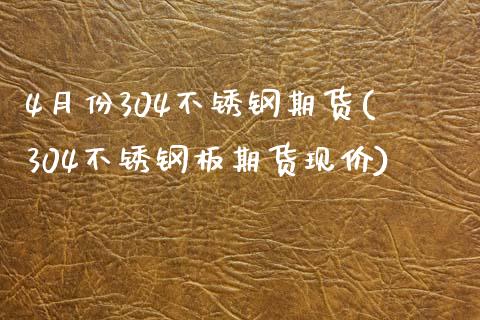 4月份304不锈钢期货(
304不锈钢板期货现价)